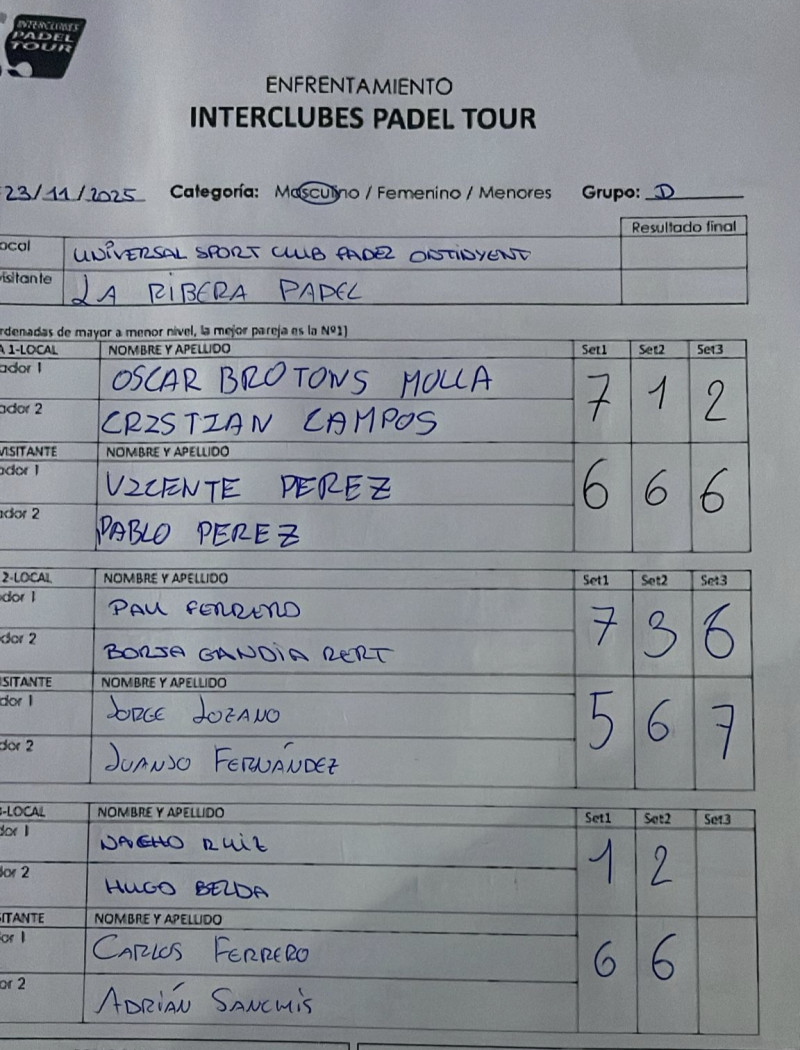 INTERCLUBES
PADEL
TOUR
ENFRENTAMIENTO
INTERCLUBES PADEL TOUR
23/11/2025 Categoría: Masculino / Femenino / Menores Grupo: D
Resultado final
ocal UNIVERSAL SPORT CLUB PADEL ONTINYENT
isitante LA RIBERA PADEL
rdenadas de mayor a menor nivel, la mejor pareja es la Nº1)
A 1-LOCAL NOMBRE Y APELLIDO Set1 Set2 Set3
ador 1 OSCAR BROTONS MOLLA 7 1 2
ador 2 CRISTIAN CAMPOS
VISITANTE NOMBRE Y APELLIDO
ador 1 VICENTE PEREZ 6 6 6
ador 2 PABLO PEREZ
2-LOCAL NOMBRE Y APELLIDO Set1 Set2 Set3
dor 1 PAU FERRERO 7 3 6
dor 2 BORJA GANDIA RERT
SITANTE NOMBRE Y APELLIDO
dor 1 JORGE LOZANO 5 6 7
dor 2 JUANJO FERNÁNDEZ
-LOCAL NOMBRE Y APELLIDO Set1 Set2 Set3
dor 1 NACHO RUIZ 1 2
dor 2 HUGO BELDA
ITANTE NOMBRE Y APELLIDO
or 1 CARLOS FERRERO 6 6
or 2 ADRIÁN SANCHIS